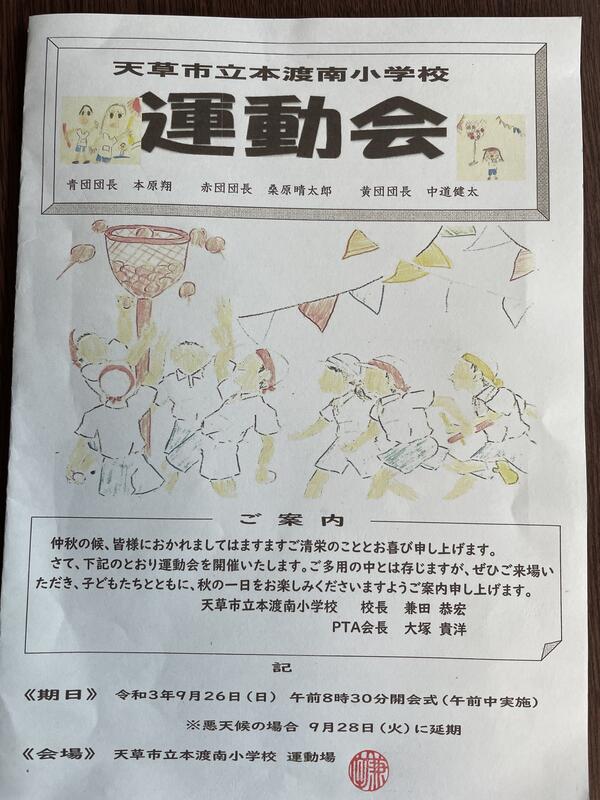 天草市立本渡南小学校
運動会
青団団長 本原翔 赤団団長 桑原晴太郎 黄団団長 中道健太
ご案内
仲秋の候、皆様におかれましてはますますご清栄のこととお喜び申し上げます。
さて、下記のとおり運動会を開催いたします。ご多用の中とは存じますが、ぜひご来場い
ただき、子どもたちとともに、秋の一日をお楽しみくださいますようご案内申し上げます。
天草市立本渡南小学校 校長 兼田 恭宏
PTA会長 大塚 貴洋
記
《期日》 令和3年9月26日(日) 午前8時30分開会式(午前中実施)
※悪天候の場合 9月28日(火)に延期
《会場》 天草市立本渡南小学校 運動場